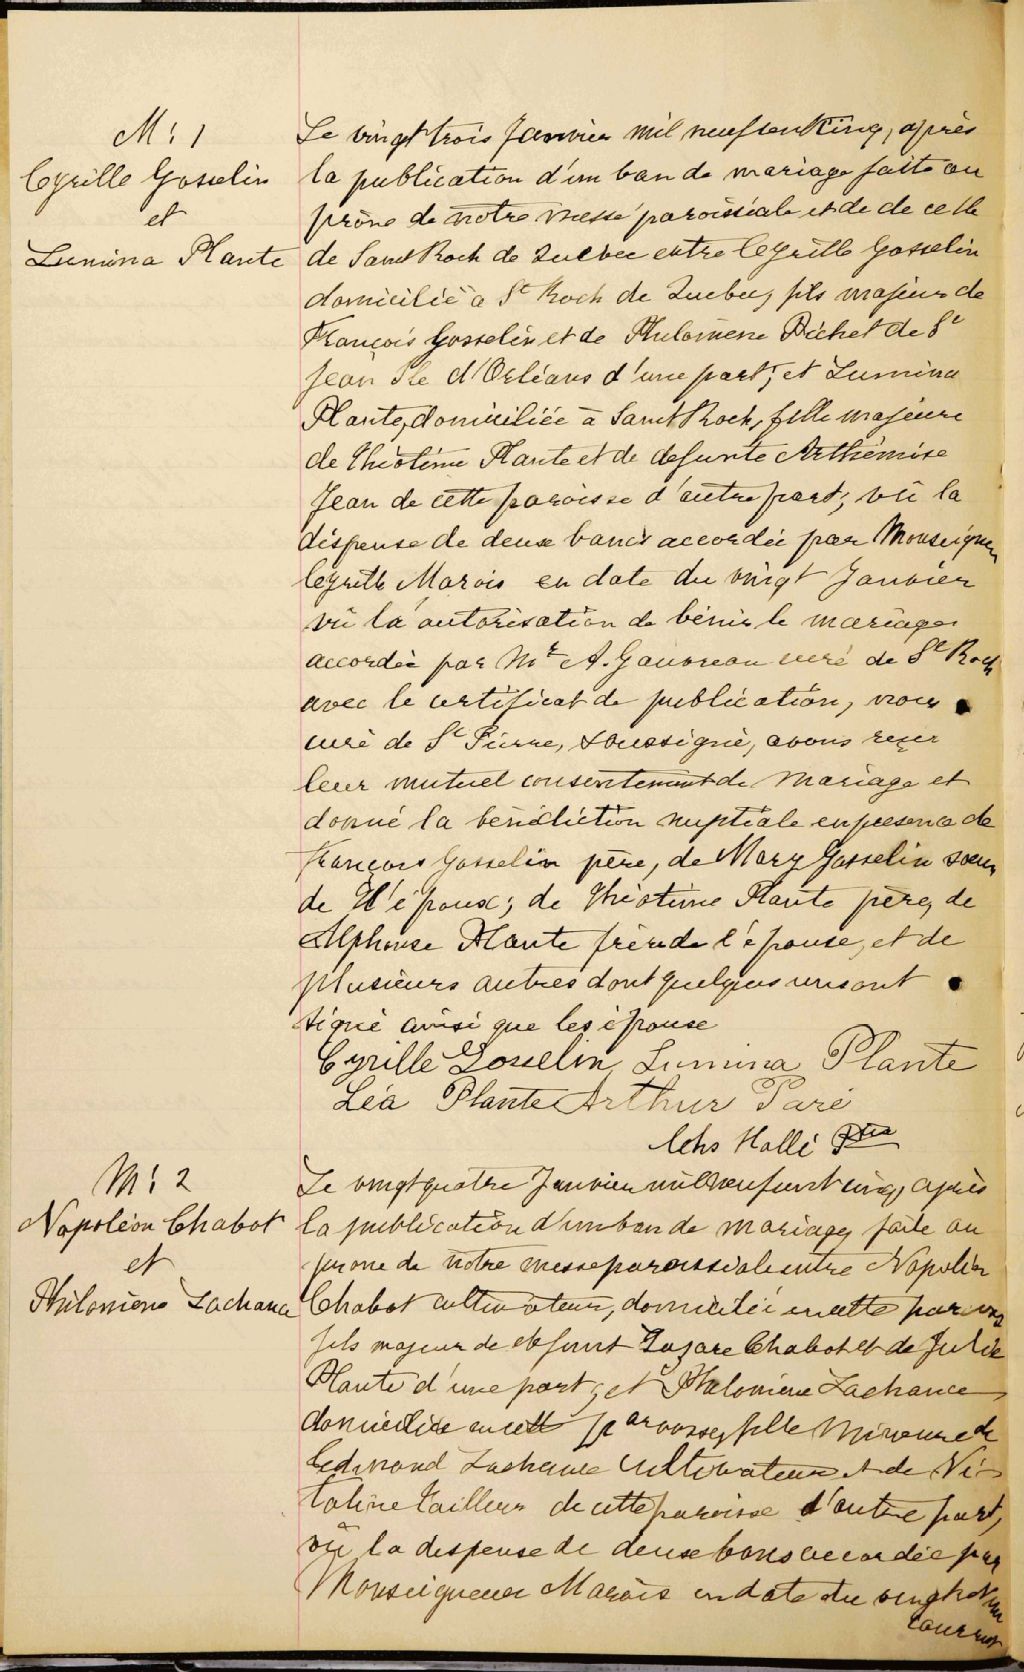 M: 1
Cyrille Gosselin
et
Lumina Plante
Le vingt trois Janvier mil neuf cent cinq, après
la publication d'un ban de mariage faite au
prône de notre messe paroissiale et de de celle
de Saint Roch de Québec entre Cyrille Gosselin
domicilié à St Roch de Québec, fils majeur de
François Gosselin et de Philomène Pichet de St
Jean Ile d'Orléans d'une part; et Lumina
Plante, domiciliée à Saint Roch, fille majeure
de Théotime Plante et de defunte Arthémise
Jean de cette paroisse d'autre part; vû la
dispense de deux bancs accordée par Monseigneur
Cyrille Marois en date du vingt Janvier
vû la autorisation de bénir le mariage
accordée par Mr A. Gauvreau curé de St Roch
avec le certificat de publication, nous
curé de St Pierre, soussigné, avons reçu
leur mutuel consentement de mariage et
donné la bénédiction nuptiale en présence de
François Gosselin père, de Mary Gosselin soeur
de l'époux; de Théotime Plante père, de
Alphonse Plante frère de l'épouse, et de
plusieurs autres dont quelques uns ont
signé ainsi que les épouse
Cyrille Gosselin, Lumina Plante
Léa Plante Arthur Paré
Chs Hallé Ptre
M: 2
Napoléon Chabot
et
Philomène Lachance
Le vingt quatre Janvier mil neuf cent cinq, après
la publication d'un ban de mariage, faite au
prone de notre messe paroissiale entre Napoléon
Chabot cultivateur, domicilié en cette paroisse
fils majeur de defunt Lazare Chabot et de Julie
Plante d'une part; et Philomène Lachance
domiciliée en cette paroisse, fille mineure de
Edmond Lachance cultivateur et de Vi-
taline Tailleur de cette paroisse d'autre part,
vû la dispense de deux bans accordée par
Monseigneur Marois en date du vingt et un
courant